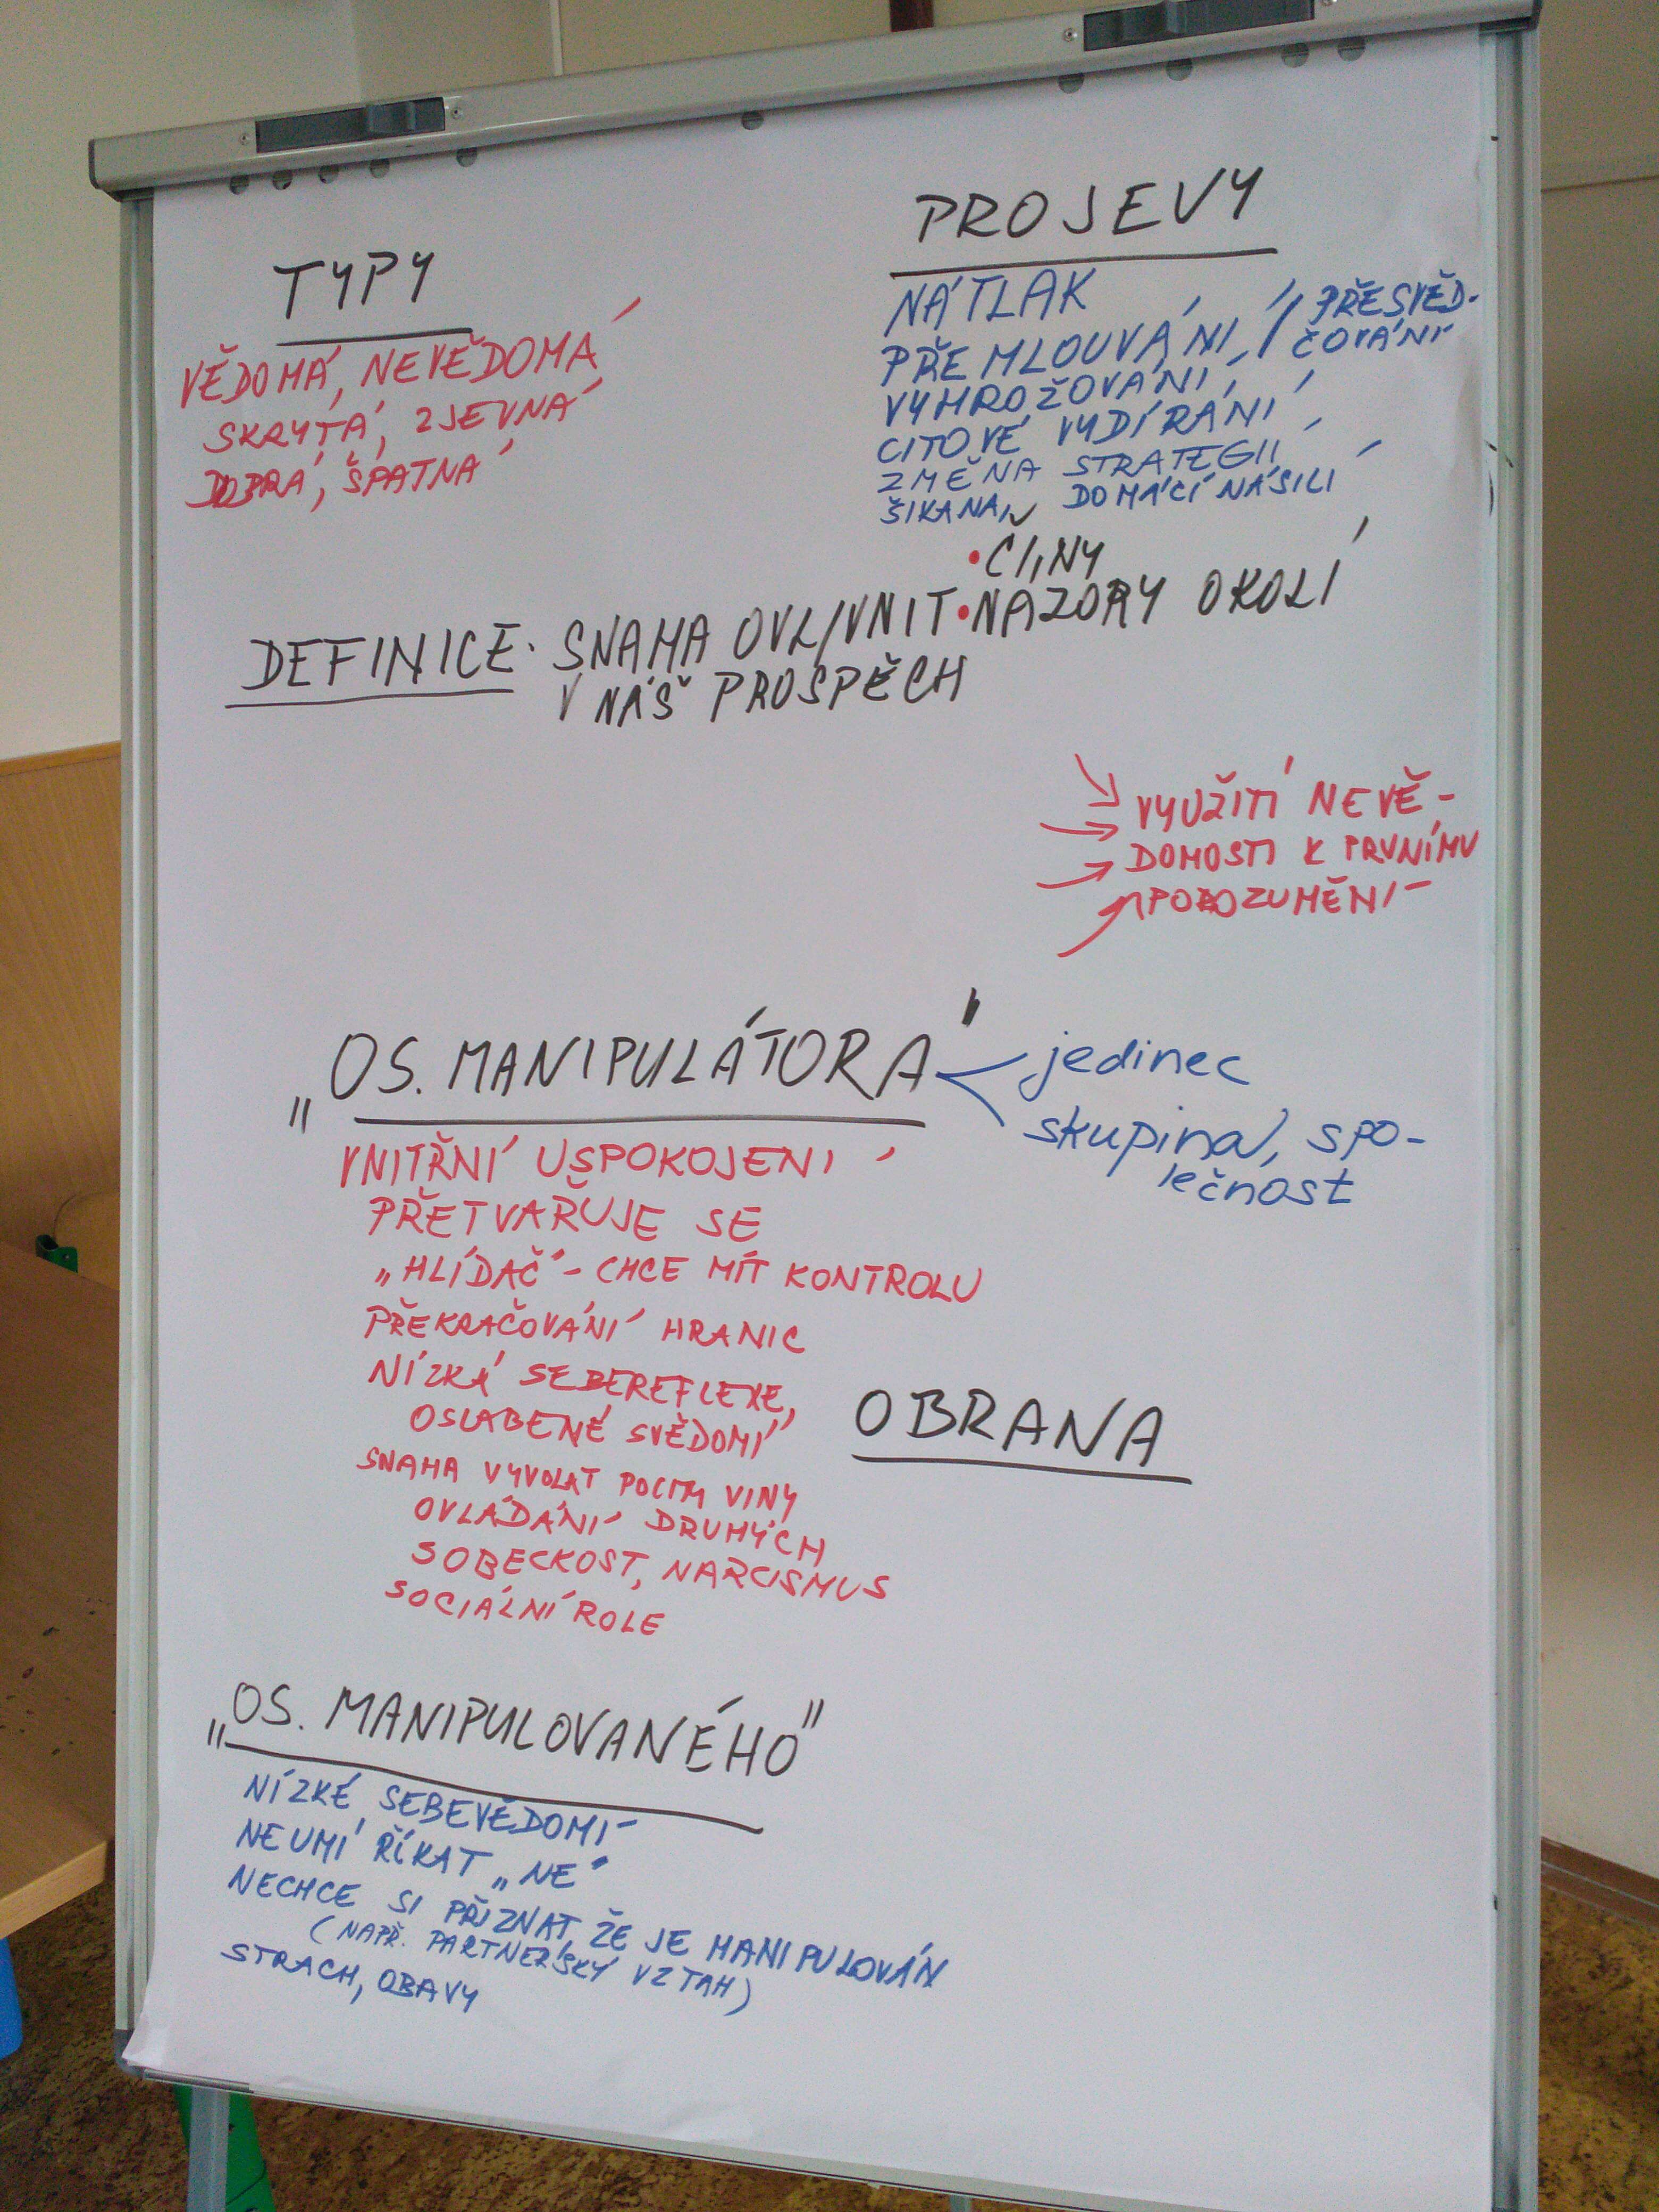 TYPY
VĚDOMÁ, NEVĚDOMÁ
SKRYTÁ, ZJEVNÁ
DOBRÁ, ŠPATNÁ
PROJEVY
NÁTLAK
PŘEMLOUVÁNÍ, / PŘESVĚD-
ČOVÁNÍ
VYHROŽOVÁNÍ,
CITOVÉ VYDÍRÁNÍ
ZMĚNA STRATEGIÍ
ŠIKANA, DOMÁCÍ NÁSILÍ
• ČINY
DEFINICE: SNAHA OVLIVNIT • NÁZORY OKOLÍ
V NÁŠ PROSPĚCH
VYUŽITÍ NEVĚ-
DOMOSTI K PRVNÍMU
POROZUMĚNÍ
„OS. MANIPULÁTORA"
jedinec
skupina, spo-
lečnost
VNITŘNÍ USPOKOJENÍ
PŘETVAŘUJE SE
„HLÍDAČ" - CHCE MÍT KONTROLU
PŘEKRAČOVÁNÍ HRANIC
NÍZKÁ SEBEREFLEXE,
OSLABENÉ SVĚDOMÍ
SNAHA VYVOLAT POCITY VINY
OVLÁDÁNÍ DRUHÝCH
SOBECKOST, NARCISMUS
SOCIÁLNÍ ROLE
OBRANA
„OS. MANIPULOVANÉHO"
NÍZKÉ SEBEVĚDOMÍ
NEUMÍ ŘÍKAT „NE"
NECHCE SI PŘIZNAT, ŽE JE MANIPULOVÁN
(NAPŘ. PARTNERSKÝ VZTAH)
STRACH, OBAVY